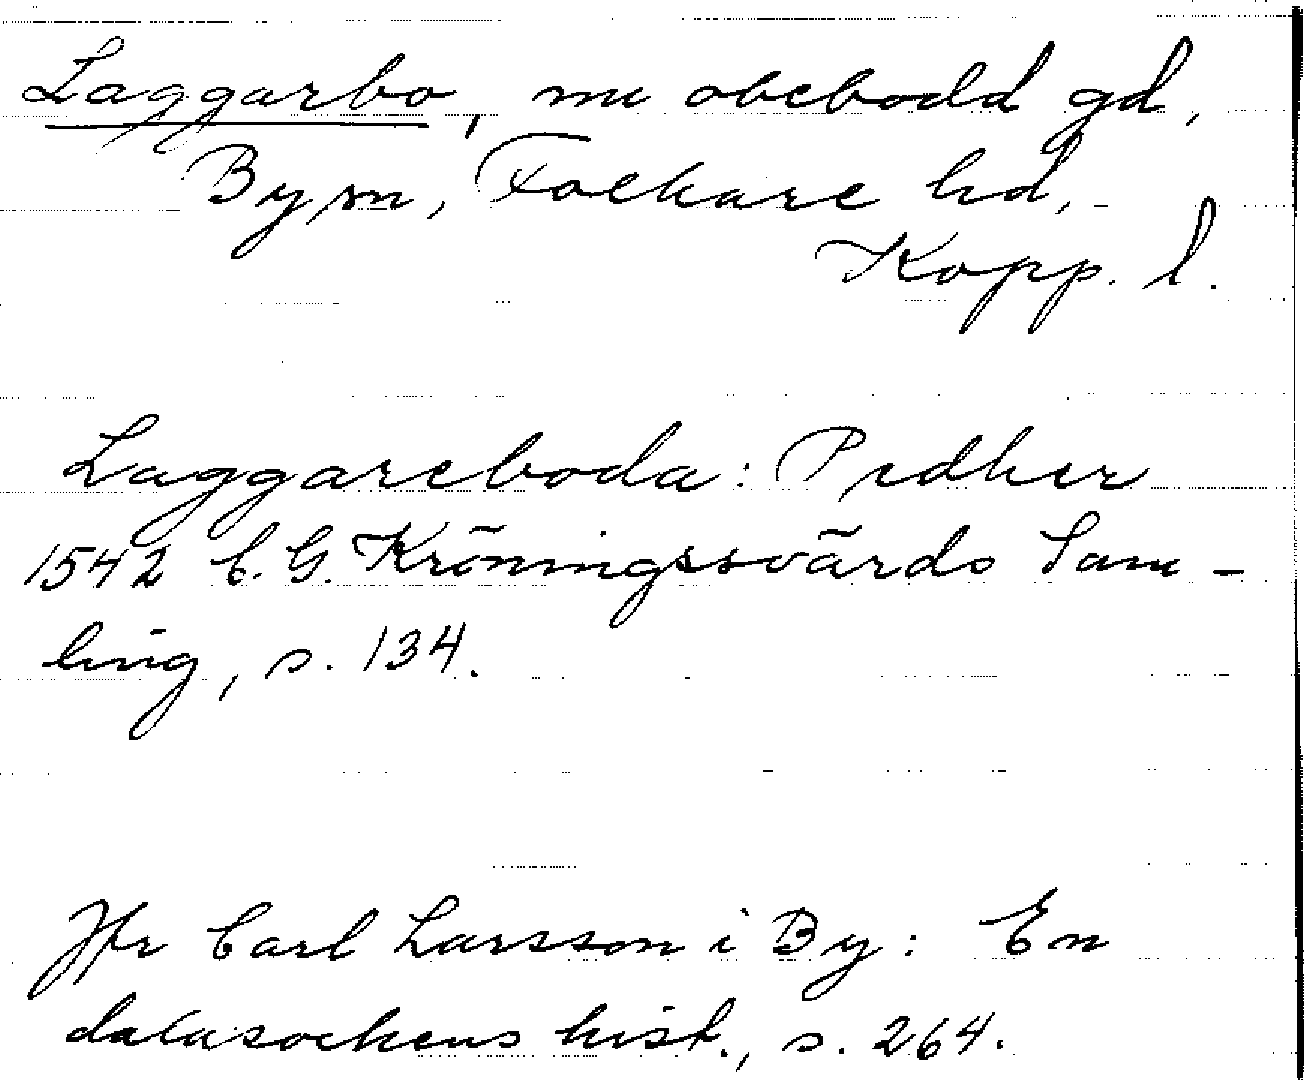 Laggarbo, nu obebodd gd,
By sn, Folkare hd,
Kopp. l.
Laggareboda: Pedher
1542 C. G. Kröningssvärds Sam-
ling, s. 134.
Jfr Carl Larsson i By: En
dalasockens hist., s. 264.